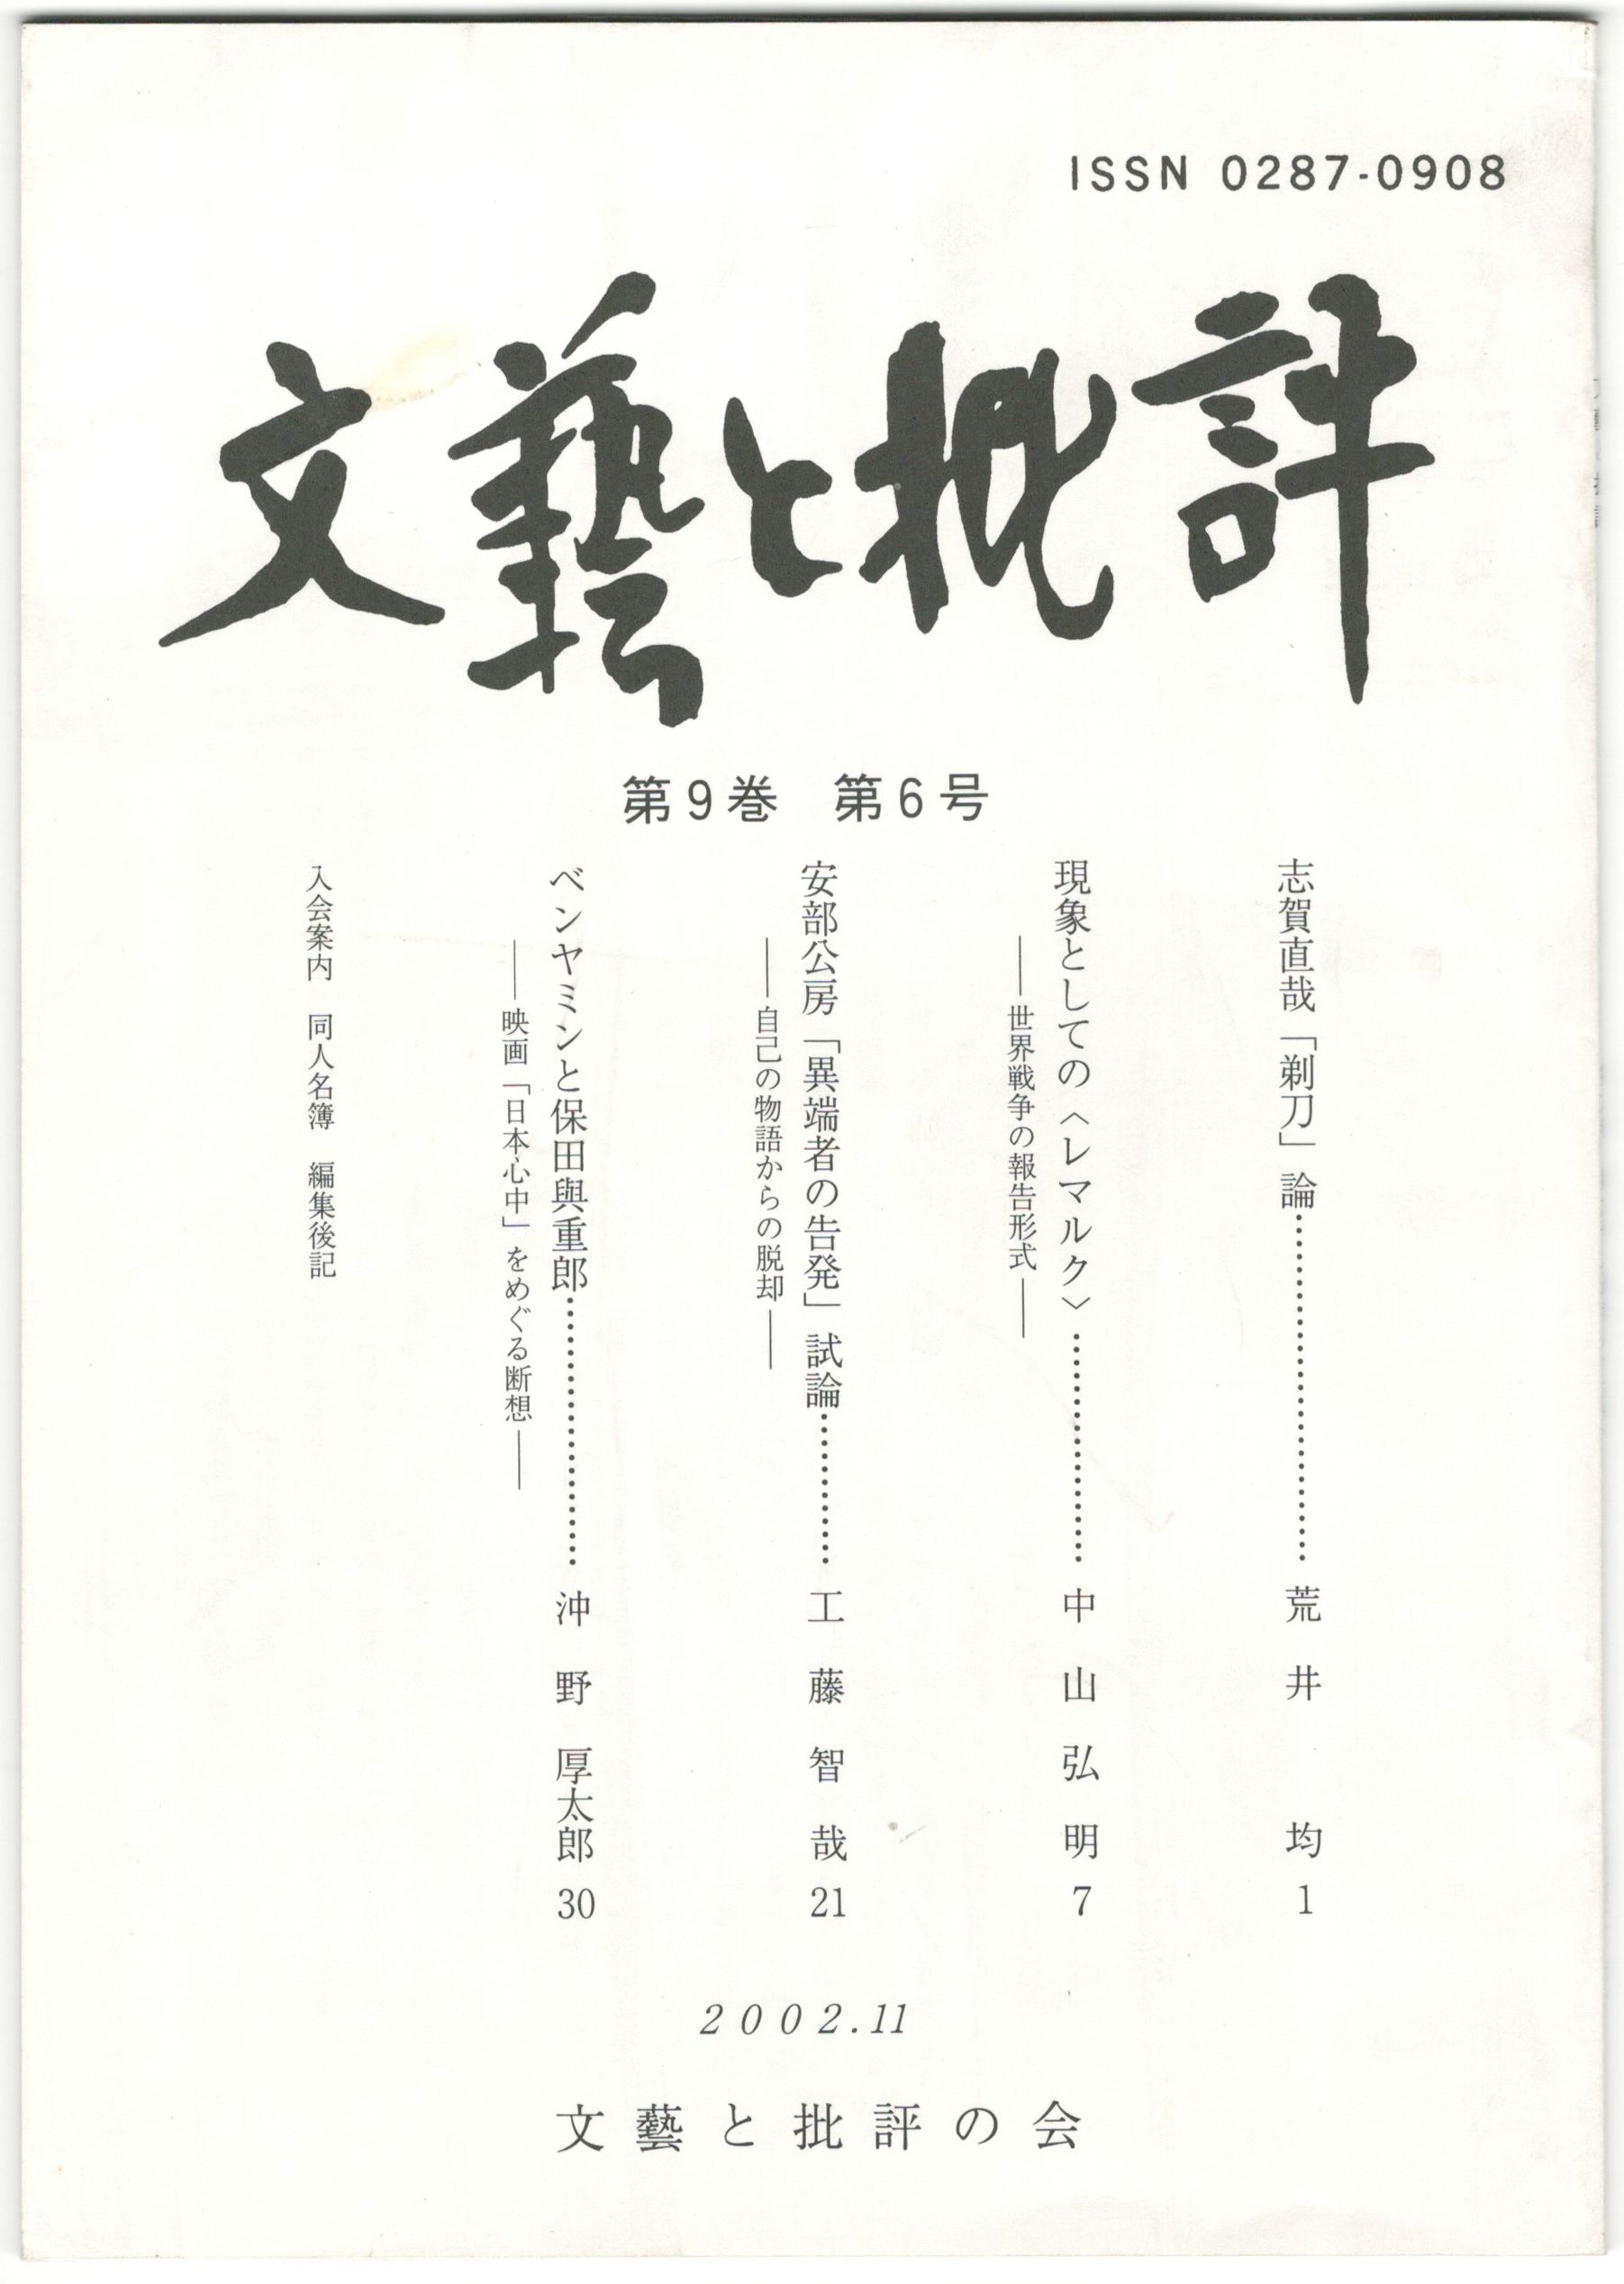 ISSN 0287-0908
文藝と批評
第9巻 第6号
志賀直哉「剃刀」論……………………荒井 均 1
現象としての〈レマルク〉……………中山弘明 7
――世界戦争の報告形式――
安部公房「異端者の告発」試論………工藤智哉 21
――自己の物語からの脱却――
ベンヤミンと保田與重郎………………沖野厚太郎 30
――映画「日本心中」をめぐる断想――
入会案内 同人名簿 編集後記
2002.11
文藝と批評の会